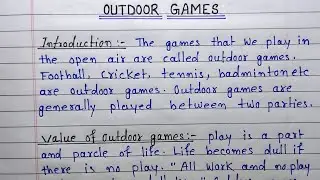 OUTDOOR GAMES
Introduction:- The games that we play in
the open air are called outdoor games.
Football, Cricket, tennis, badminton etc
are outdoor games. Outdoor games are
generally played between two parties.
Value of Outdoor games:- play is a part
and parcle of life. Life becomes dull if
there is no play. "All work and no play